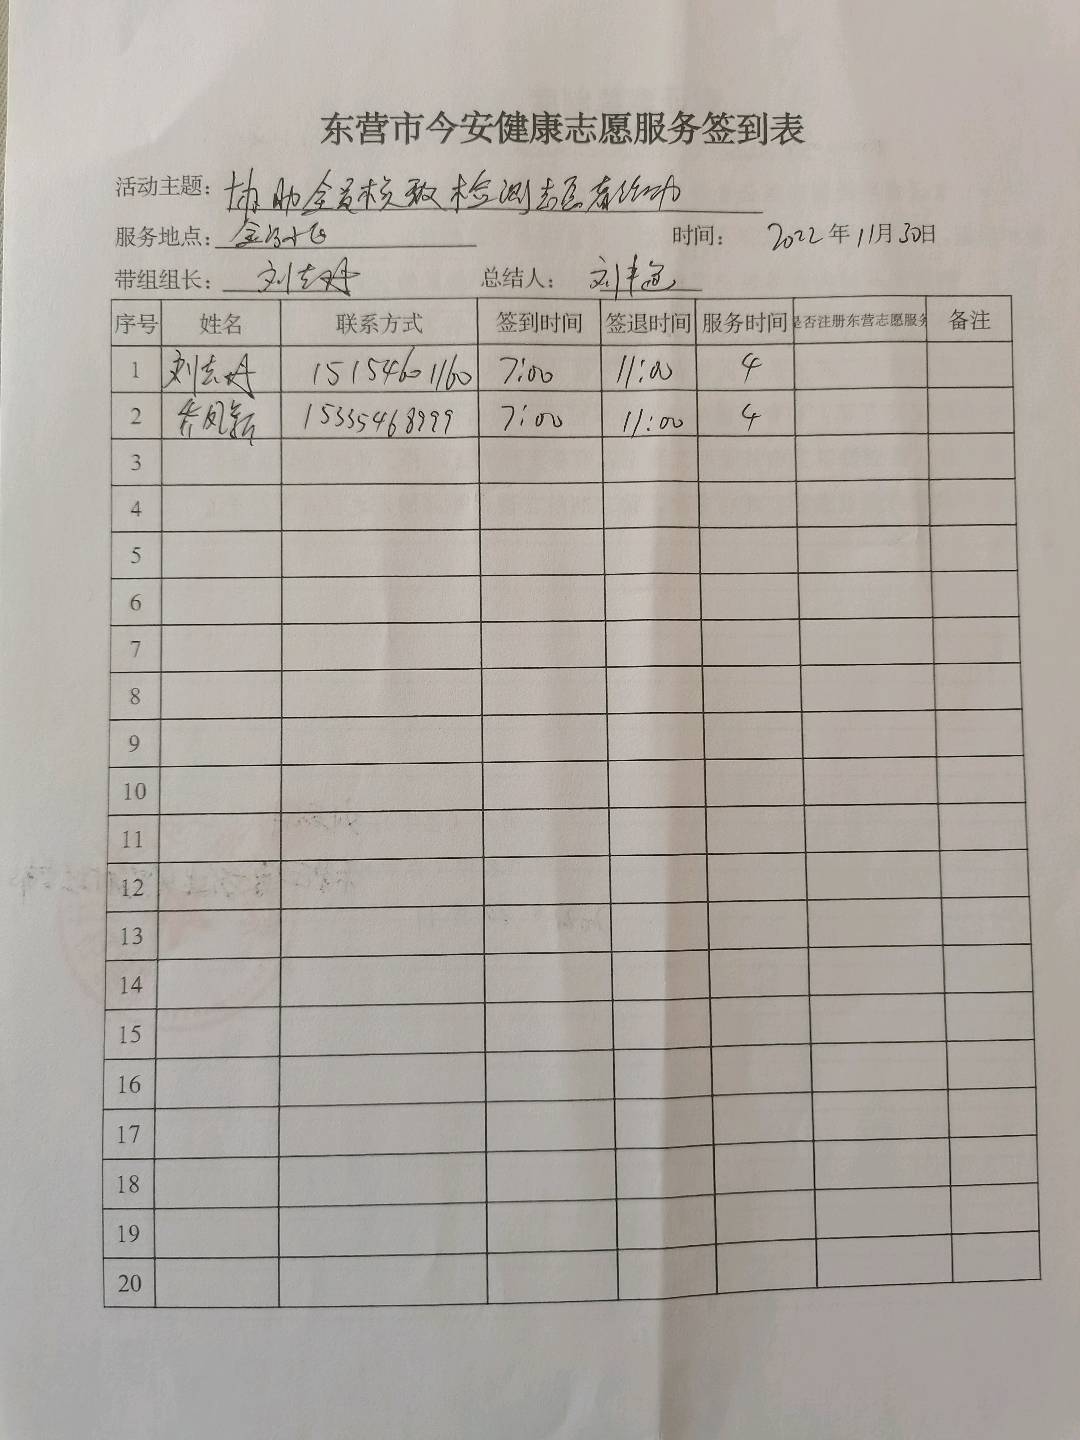 东营市今安健康志愿服务签到表
活动主题：协助全员核酸检测志愿者活动
服务地点： 时间： 2022年11月30日
带组组长：刘志丹 总结人：刘
序号 姓名 联系方式 签到时间 签退时间 服务时间 是否注册东营志愿服务 备注
1 刘志丹 15154601160 7:00 11:00 4
2 15335468999 7:00 11:00 4
3
4
5
6
7
8
9
10
11
12
13
14
15
16
17
18
19
20